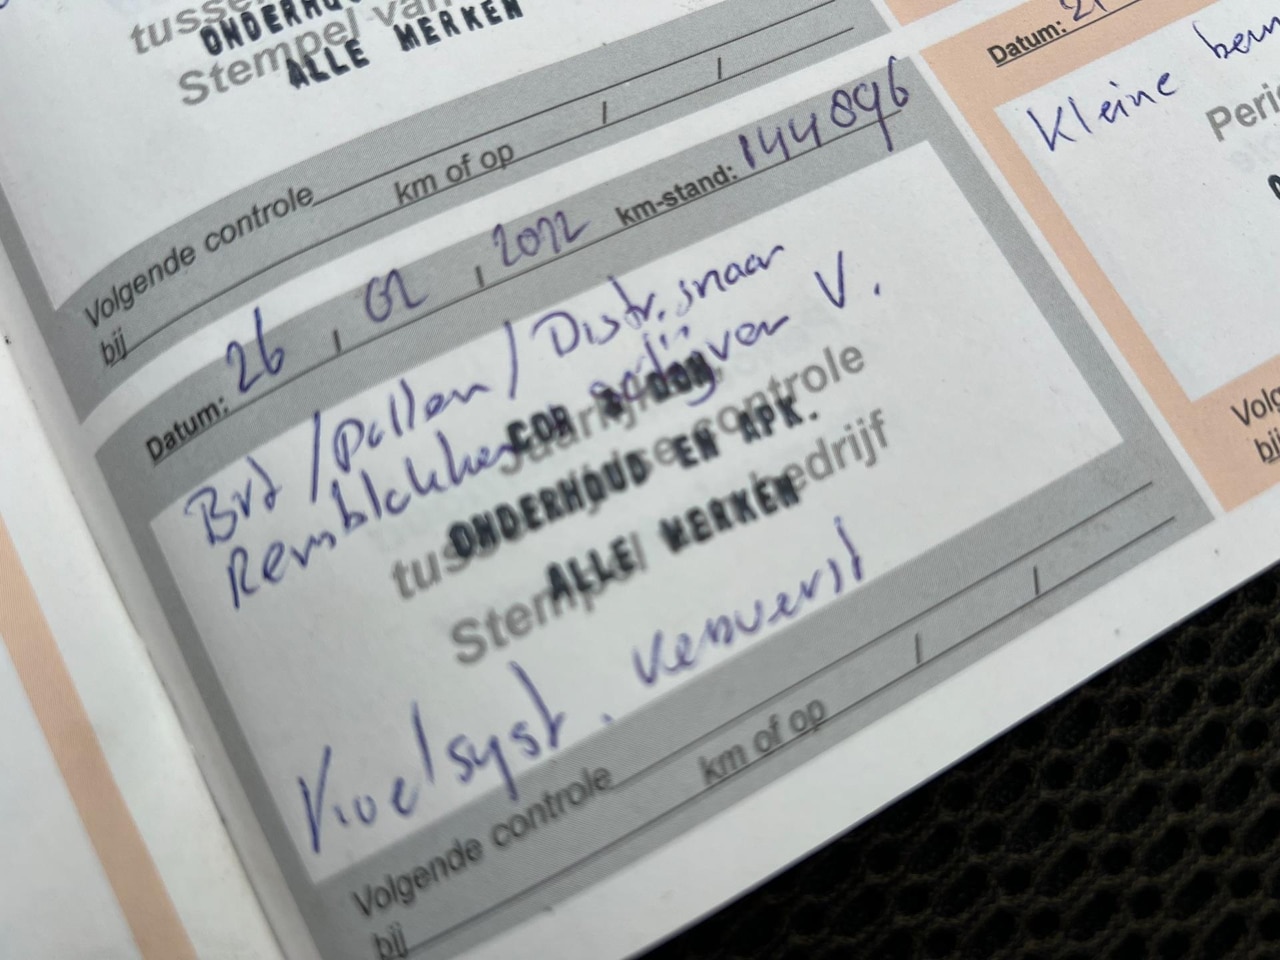 ONDERHOUD
Stempel van
ALLE MERKEN
Volgende controle
bij km of op / /
Datum: 26 , 02 , 2022 km-stand: 144896
Brd / pollen / Distr. snaar
Remblokken schijven V.
COR & DON
Jaarlijkse
ONDERHOUD EN APK.
tussentijdse controle
ALLE MERKEN
Stempel bedrijf
Koelsyst. ververst
Volgende controle
bij km of op / /
Datum: 21
Kleine